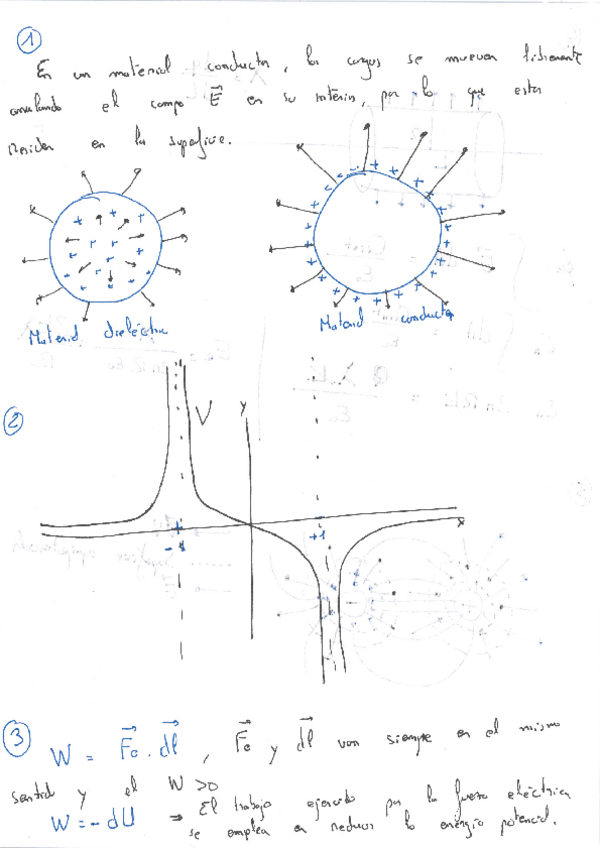 1
En un material conductor, las cargas se mueven libremente
anulando el campo E en su interior, por lo que estas
residen en la superficie.
Material dieléctrico
Material conductor
2
V
y
x
-1
+1
3
W = Fe · dl, Fe y dl van siempre en el mismo
sentido y el W>0
W = - dU ⇒ El trabajo ejercido por la fuerza eléctrica
se emplea en reducir la energía potencial.